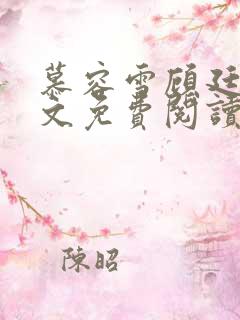 慕容雪顧廷
文免費閱讀
陳昭